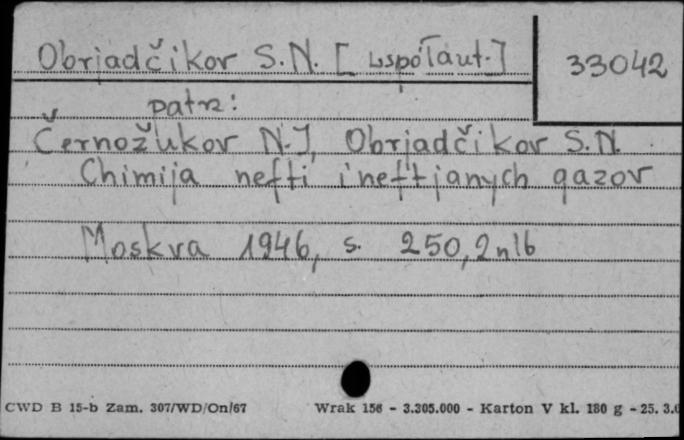 Obrjadčikov S.N. [współaut.]
33042
patrz:
Černožukov N.I, Obrjadčikov S.N.
Chimija nefti i neftjanych gazov
Moskva 1946, s. 250, 2nlb
CWD B 15-b Zam. 307/WD/On/67 Wrak 156 - 3.305.000 - Karton V kl. 180 g - 25. 3.